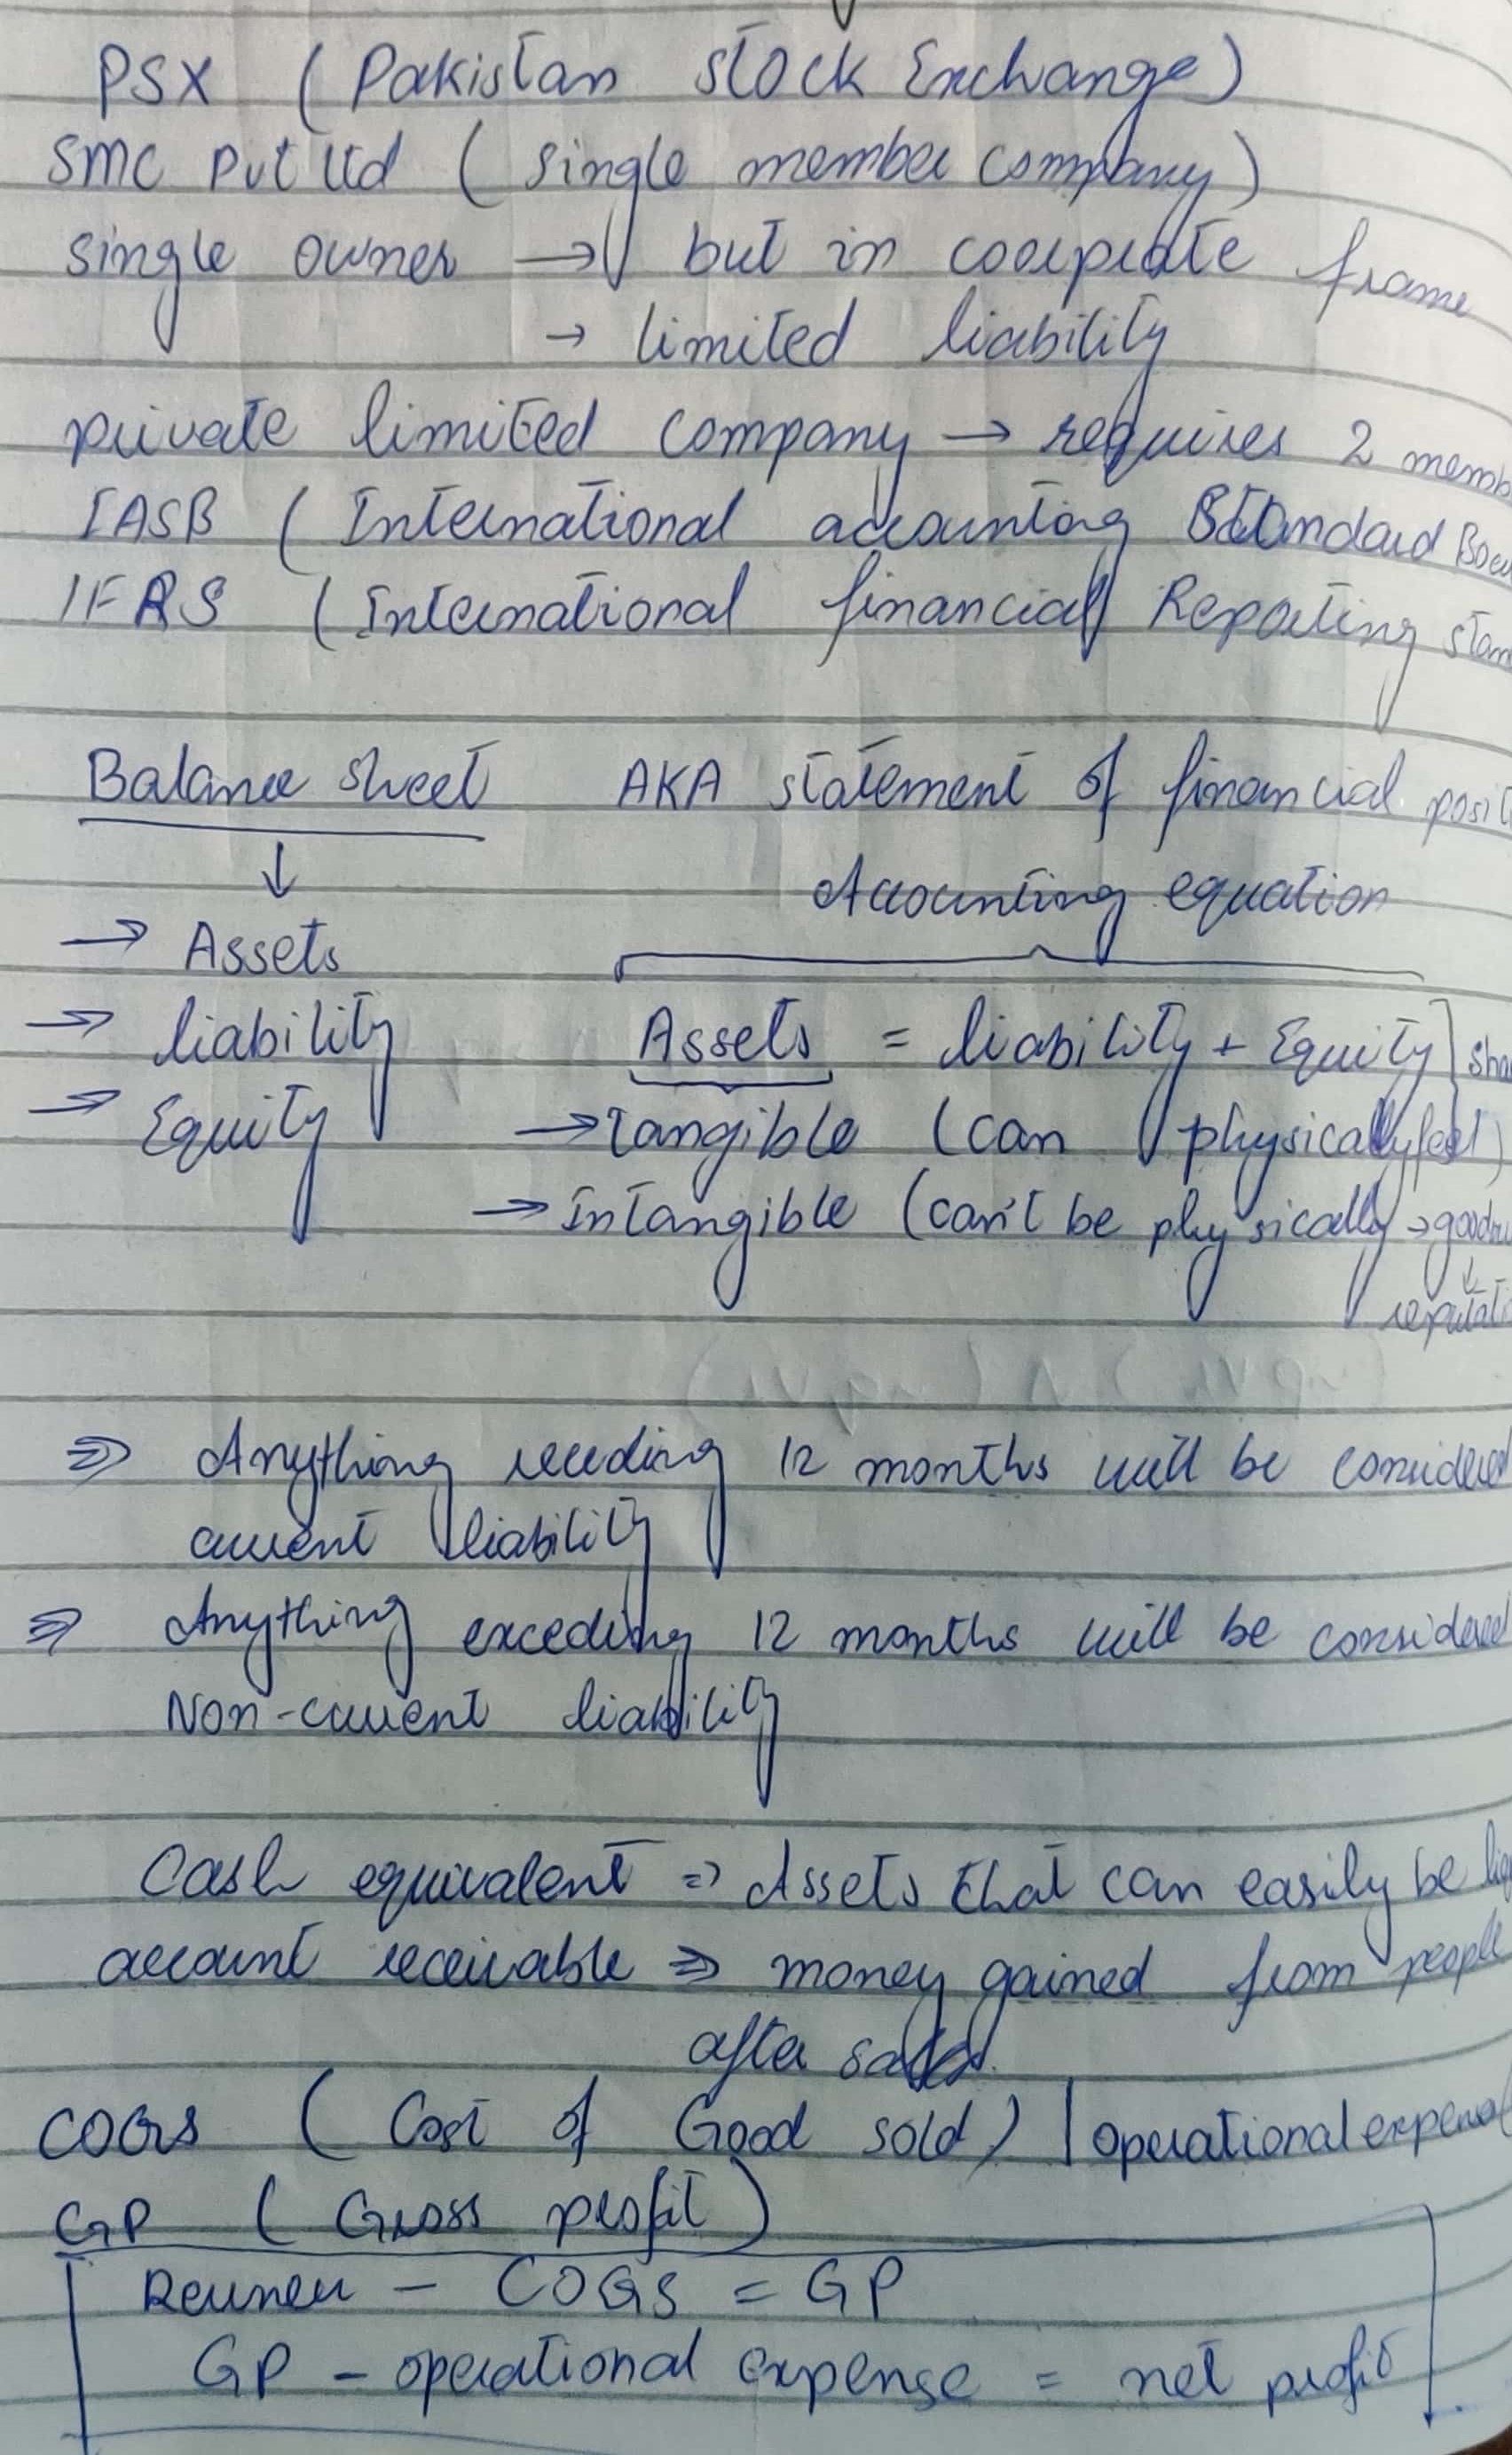 PSX (Pakistan Stock Exchange)
SMC Pvt Ltd (single member company)
single owner → but in coorprate frame
→ limited liability
private limited company → requires 2 memb
IASB (International accounting Standard Boa
IFRS (International financial Reporting stan
Balance sheet AKA statement of financial posit
↓ Accounting equation
→ Assets
→ liability Assets = liability + Equity] sha
→ Equity → tangible (can physically feel)
→ Intangible (can't be physically → goodw
↓
reputati
⇒ Anything receding 12 months will be considered
current liability
⇒ Anything exceding 12 months will be considered
Non-current liability
Cash equivalent ⇒ Assets that can easily be liq
account receivable ⇒ money gained from people
after sales.
COGS (Cost of Good sold) | operational expense
GP (Gross profit)
– COGS = GP
GP – operational expense = net profit